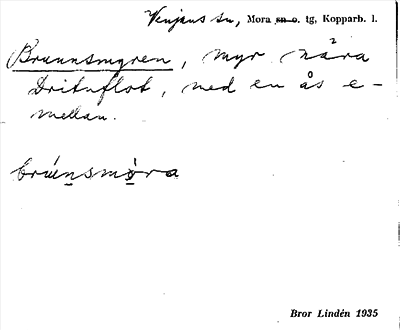 Venjans sn, Mora sn o. tg, Kopparb. l.
Brunnsmyren, myr nära
Dritnflot, med en ås e-
mellan.
brúnsmòra
Bror Lindén 1935